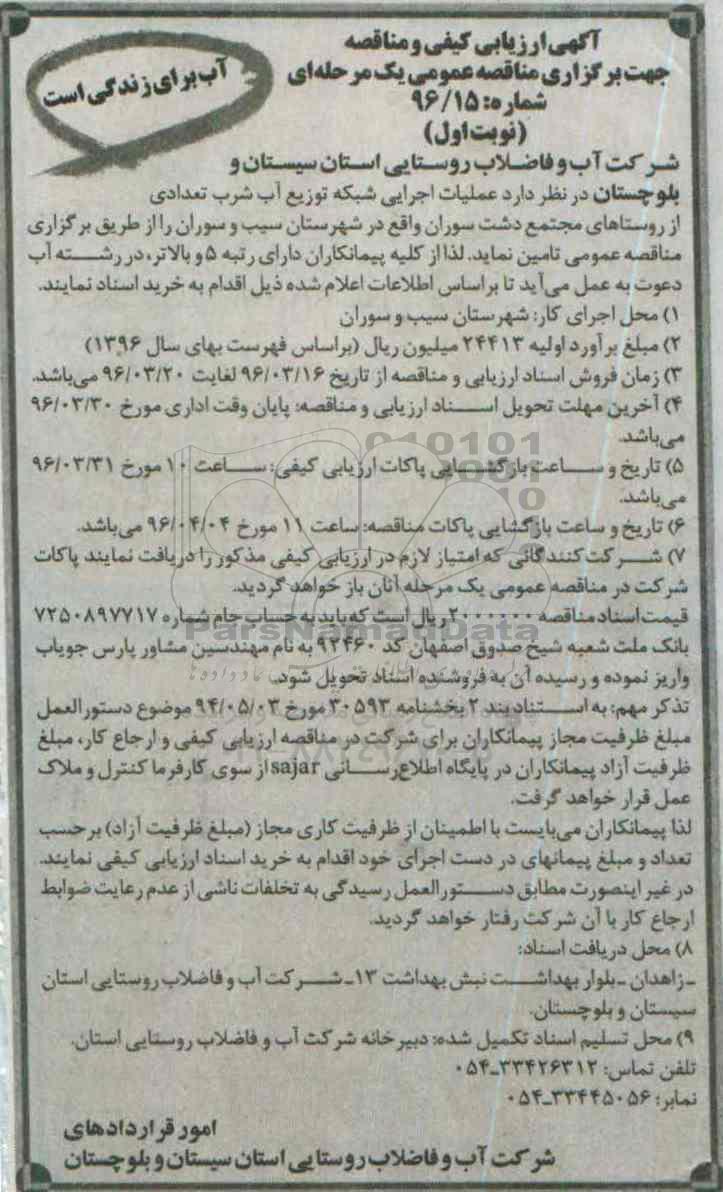 آگهی ارزیابی کیفی و مناقصه
جهت برگزاری مناقصه عمومی یک مرحله‌ای
شماره: ۹۶/۱۵
(نوبت اول)
آب برای زندگی است
شرکت آب و فاضلاب روستایی استان سیستان و
بلوچستان در نظر دارد عملیات اجرایی شبکه توزیع آب شرب تعدادی
از روستاهای مجتمع دشت سوران واقع در شهرستان سیب و سوران را از طریق برگزاری
مناقصه عمومی تامین نماید. لذا از کلیه پیمانکاران دارای رتبه ۵ و بالاتر، در رشته آب
دعوت به عمل می‌آید تا براساس اطلاعات اعلام شده ذیل اقدام به خرید اسناد نمایند.
۱) محل اجرای کار: شهرستان سیب و سوران
۲) مبلغ برآورد اولیه ۲۴۴۱۳ میلیون ریال (براساس فهرست بهای سال ۱۳۹۶)
۳) زمان فروش اسناد ارزیابی و مناقصه از تاریخ ۹۶/۰۳/۱۶ لغایت ۹۶/۰۳/۲۰ می‌باشد.
۴) آخرین مهلت تحویل اسناد ارزیابی و مناقصه: پایان وقت اداری مورخ ۹۶/۰۳/۳۰
می‌باشد.
۵) تاریخ و ساعت بازگشایی پاکات ارزیابی کیفی: ساعت ۱۰ مورخ ۹۶/۰۳/۳۱
می‌باشد.
۶) تاریخ و ساعت بازگشایی پاکات مناقصه: ساعت ۱۱ مورخ ۹۶/۰۴/۰۴ می‌باشد.
۷) شرکت کنندگانی که امتیاز لازم در ارزیابی کیفی مذکور را دریافت نمایند پاکات
شرکت در مناقصه عمومی یک مرحله آنان باز خواهد گردید.
قیمت اسناد مناقصه ۲۰۰۰۰۰۰ ریال است که باید به حساب جام شماره ۷۲۵۰۸۹۷۷۱۷
بانک ملت شعبه شیخ صدوق اصفهان کد ۹۲۴۶۰ به نام مهندسین مشاور پارس جویاب
واریز نموده و رسیده آن به فروشنده اسناد تحویل شود.
ParsNamadData
تذکر مهم: به استناد بند ۲ بخشنامه ۳۰۵۹۳ مورخ ۹۴/۰۵/۰۳ موضوع دستورالعمل
مبلغ ظرفیت مجاز پیمانکاران برای شرکت در مناقصه ارزیابی کیفی و ارجاع کار، مبلغ
ظرفیت آزاد پیمانکاران در پایگاه اطلاع‌رسانی sajar از سوی کارفرما کنترل و ملاک
عمل قرار خواهد گرفت.
لذا پیمانکاران می‌بایست با اطمینان از ظرفیت کاری مجاز (مبلغ ظرفیت آزاد) برحسب
تعداد و مبلغ پیمانهای در دست اجرای خود اقدام به خرید اسناد ارزیابی کیفی نمایند.
در غیر اینصورت مطابق دستورالعمل رسیدگی به تخلفات ناشی از عدم رعایت ضوابط
ارجاع کار با آن شرکت رفتار خواهد گردید.
۸) محل دریافت اسناد:
ـ زاهدان ـ بلوار بهداشت نبش بهداشت ۱۳ ـ شرکت آب و فاضلاب روستایی استان
سیستان و بلوچستان.
۹) محل تسلیم اسناد تکمیل شده: دبیرخانه شرکت آب و فاضلاب روستایی استان.
تلفن تماس: ۳۳۴۲۶۳۱۲-۰۵۴
نمابر: ۳۳۴۴۵۰۵۶-۰۵۴
امور قراردادهای
شرکت آب و فاضلاب روستایی استان سیستان و بلوچستان